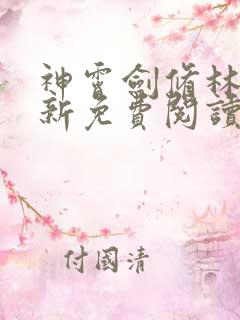 神霄劍脩林
新免費閱讀
付國清